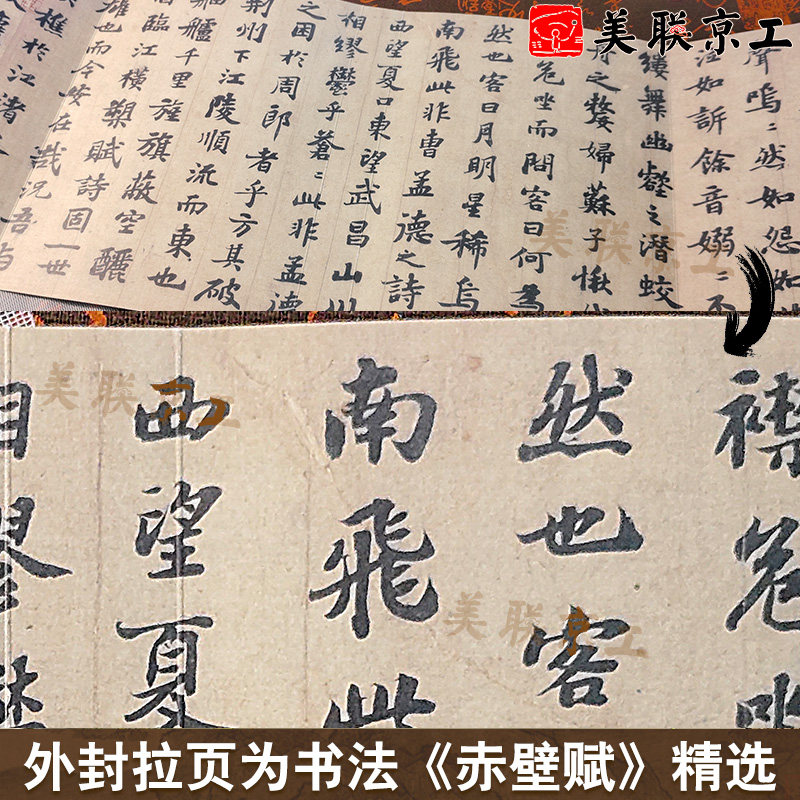 美联京工
聲嗚〻然如怨如
泣如訴餘音嫋〻不
縷舞幽壑之潛蛟
舟之嫠婦蘇子愀
危坐而問客曰何為
然也客曰月明星稀烏
南飛此非曹孟德之詩
西望夏口東望武昌山川
相繆鬱乎蒼〻此非孟德
之困於周郎者乎方其破
荊州下江陵順流而東也
舳艫千里旌旗蔽空釃
臨江橫槊賦詩固一世
雄也而今安在哉況吾與
樵於江渚
美联京工
襟危坐
然也客
南飛此
西望夏
相繆鬱
美联京工
美联京工
外封拉页为书法《赤壁赋》精选